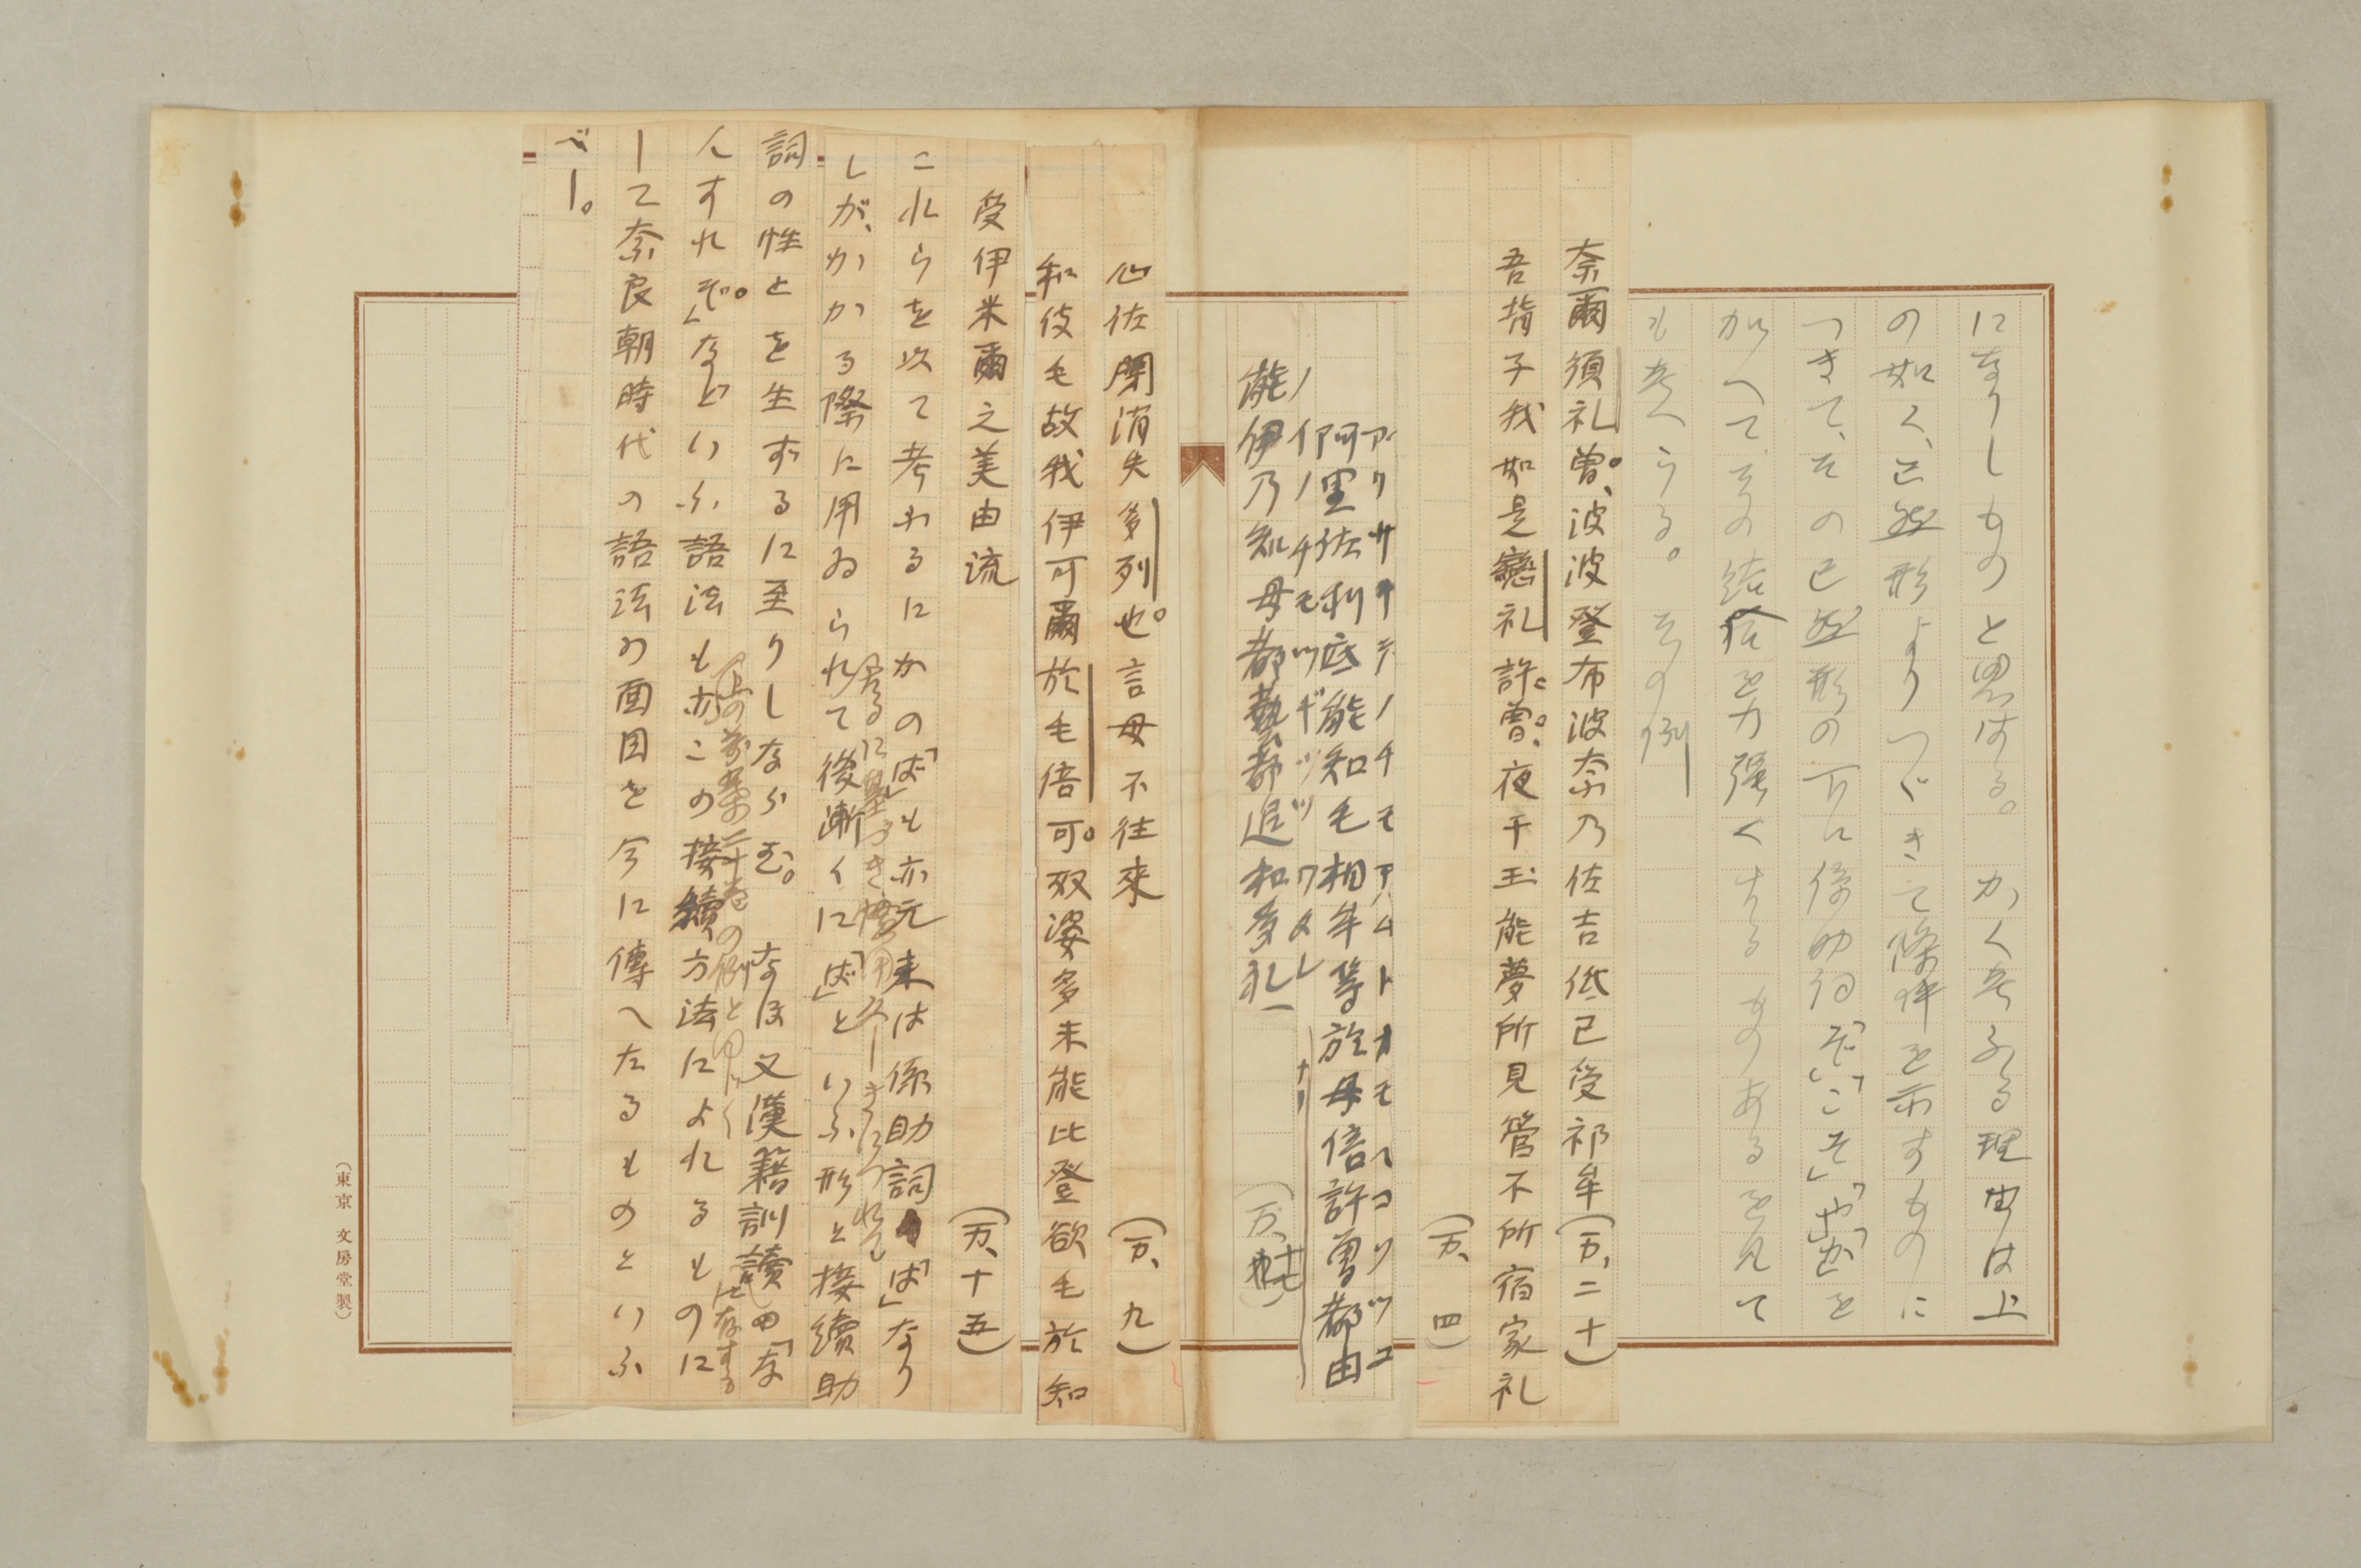 になりしものと思はる。かく考ふる理由は上
の如く、已然形よりつゞきて條件を示すものに
つきて、その已然形の下に係助詞「ぞ」「こそ」「や」「か」を
加へて、その結合を力強くするものあるを見て
も考へうる。その例
奈爾須礼曽、波波登布波奈乃佐吉低己受祁牟(万、二十)
吾背子我如是戀礼許曽、夜干玉能夢所見管不所宿家礼
(万、四)
アリサリテノチモアハムトオモヘコソツユ
阿里佐利底能知毛相牟等於母倍許曽都由
ノイノチモツギツツワタレ
能伊乃知母都藝都追和多礼
(万、十七)
心佐閇消失多列也。言母不往來
(万、九)
和伎毛故我伊可爾於毛倍可。奴婆多末能比登欲毛於知
受伊米爾之美由流
(万、十五)
これらを以て考ふるにかの「ば」も亦元来は係助詞「は」なり
しが、かかる際に用ゐられて後漸くに「ば」といふ形と接續助
詞の性とを生ずるに至りしならむ。なほ又漢籍訓讀の「な
んすれぞ」などいふ語法も亦この接續方法によれるものに
して奈良朝時代の語法の面目を今に傳へたるものといふ
べし。
(東京 文房堂製)